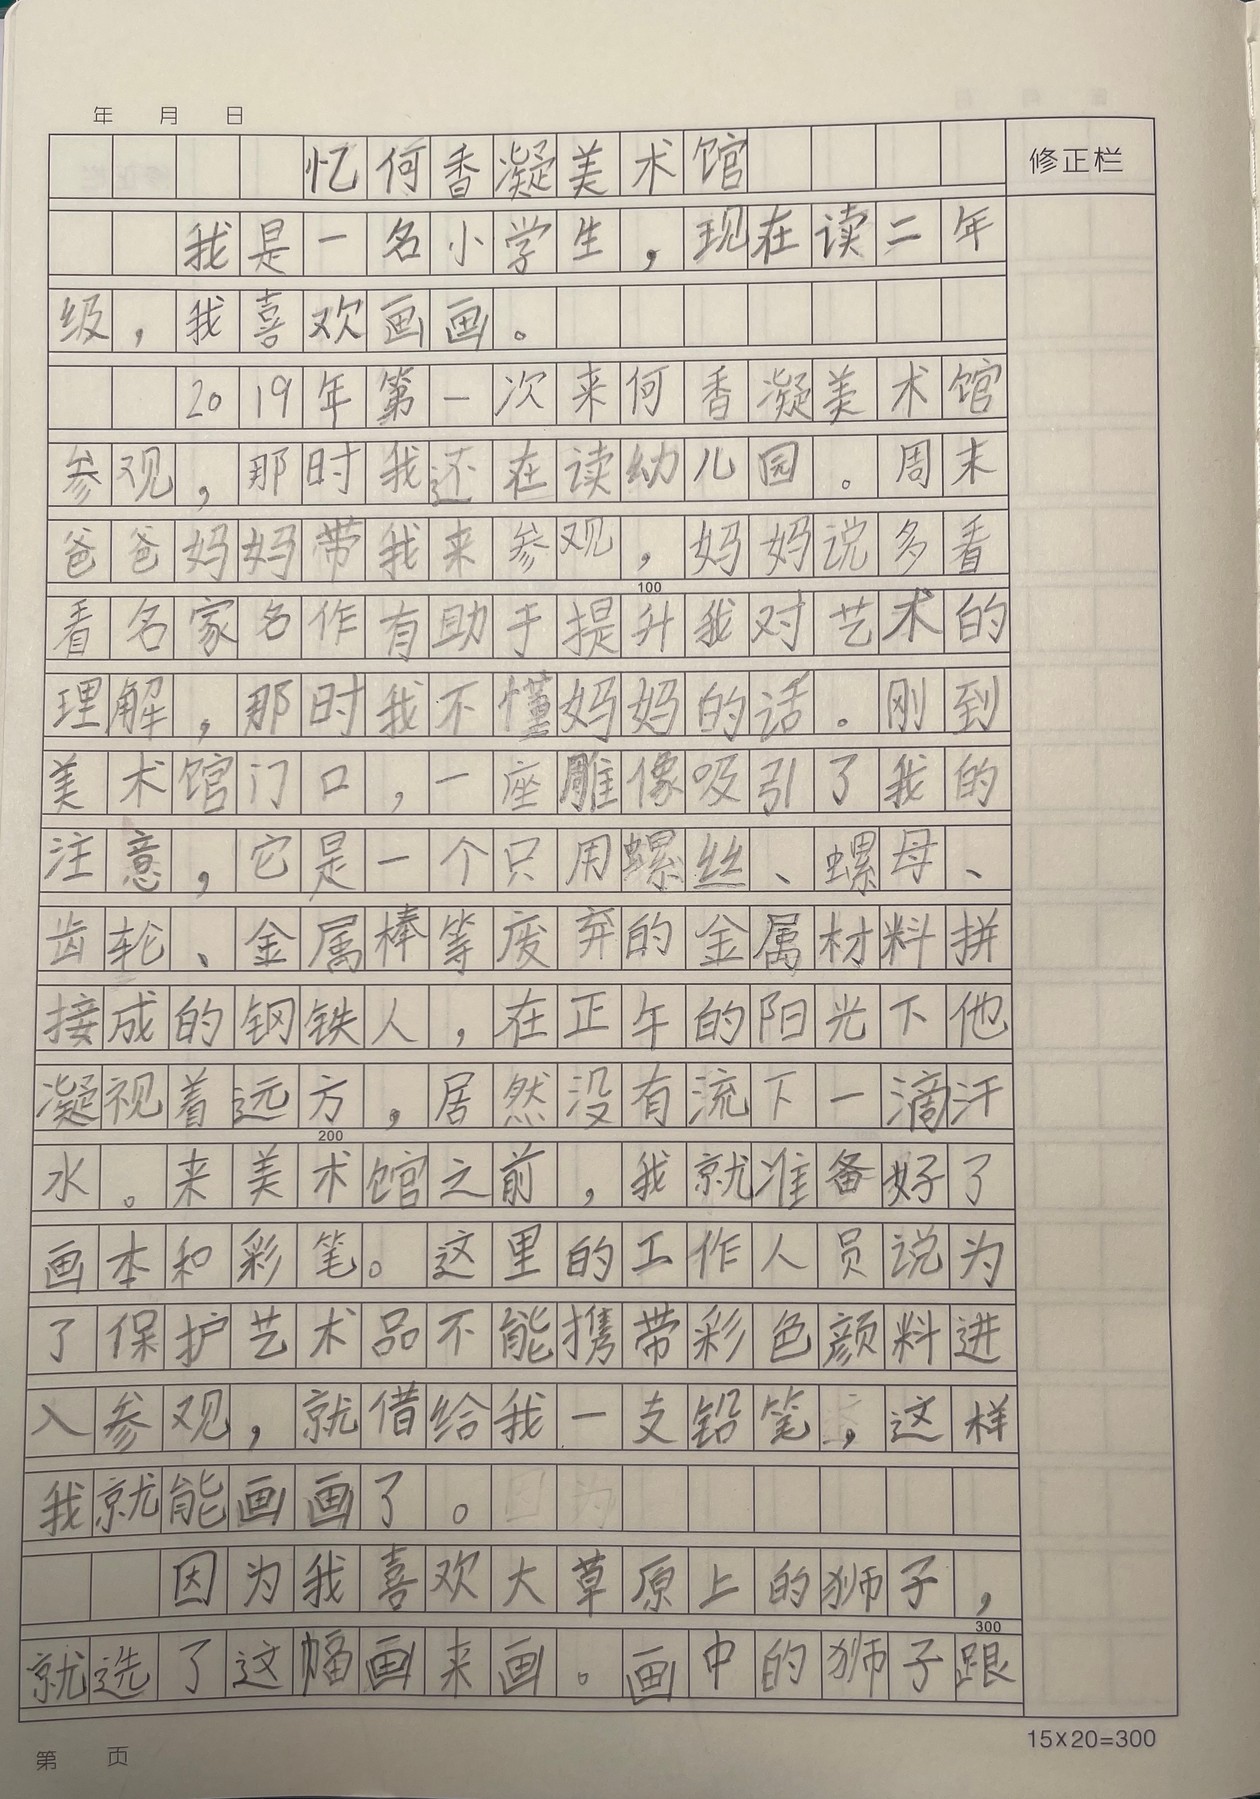 年 月 日
忆何香凝美术馆
修正栏
我是一名小学生，现在读二年
级，我喜欢画画。
2019年第一次来何香凝美术馆
参观，那时我还在读幼儿园。周末
爸爸妈妈带我来参观，妈妈说多看
100
看名家名作有助于提升我对艺术的
理解，那时我不懂妈妈的话。刚到
美术馆门口，一座雕像吸引了我的
注意，它是一个只用螺丝、螺母、
齿轮、金属棒等废弃的金属材料拼
接成的钢铁人，在正午的阳光下他
凝视着远方，居然没有流下一滴汗
200
水。来美术馆之前，我就准备好了
画本和彩笔。这里的工作人员说为
了保护艺术品不能携带彩色颜料进
入参观，就借给我一支铅笔，这样
我就能画画了。
因为我喜欢大草原上的狮子，
300
就选了这幅画来画。画中的狮子跟
15×20=300
第 页